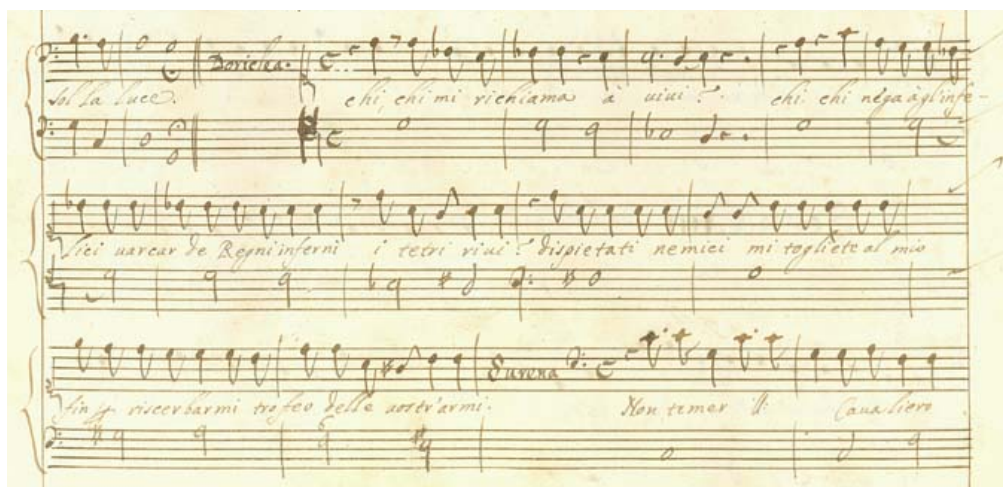 sol la luce. Doriclea. chi, chi mi richiama à uiui? chi chi nega àgl'infe-
lici uarcar de Regni inferni i tetri riui? dispietati nemici mi togliete al mio
fin riserbarmi trofeo delle uostr'armi. Surena Non temer ij: Caualiero